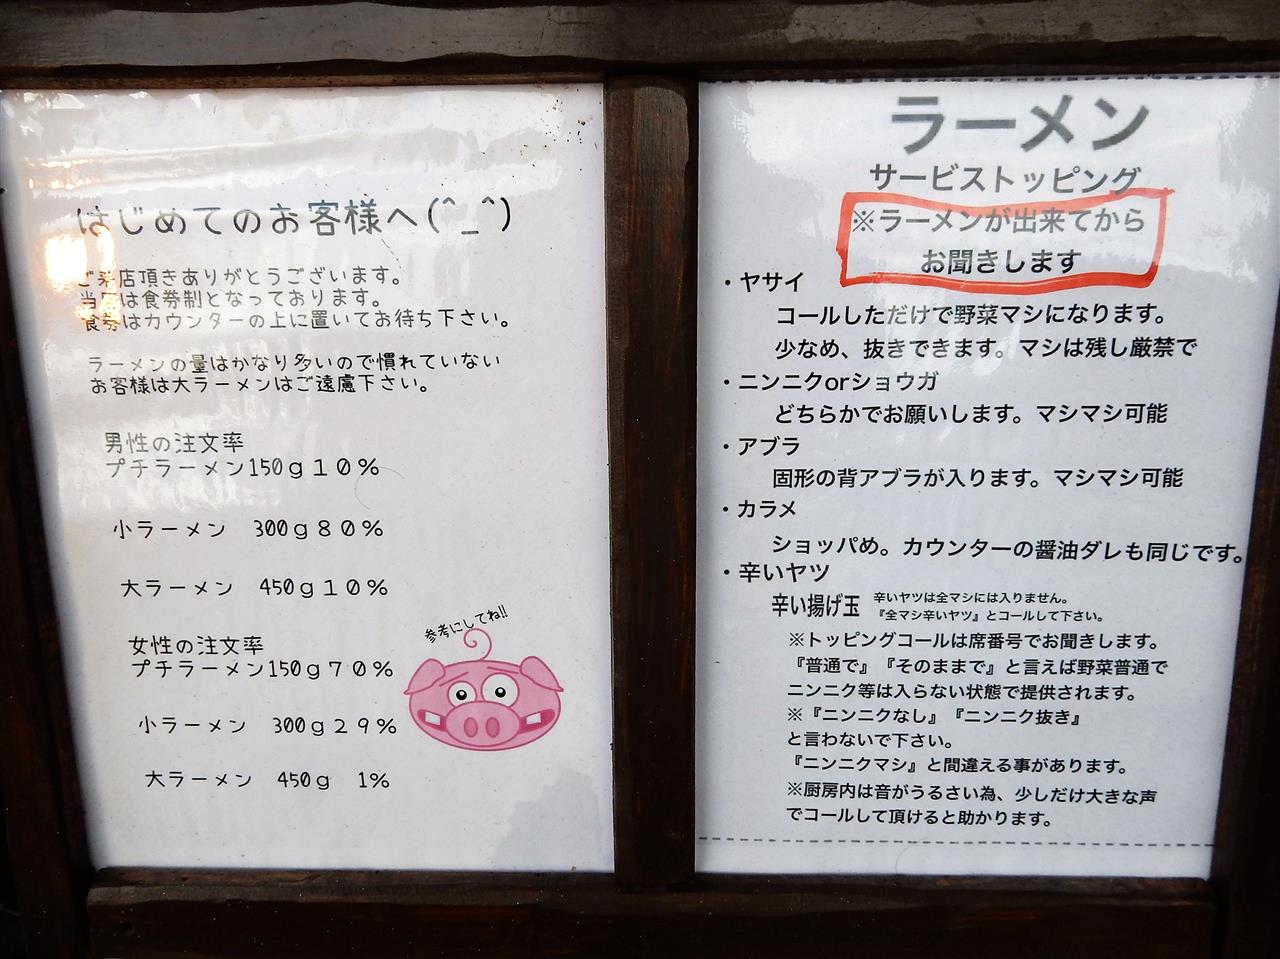 はじめてのお客様へ(^_^)
ご来店頂きありがとうございます。
当店は食券制となっております。
食券はカウンターの上に置いてお待ち下さい。
ラーメンの量はかなり多いので慣れていない
お客様は大ラーメンはご遠慮下さい。
男性の注文率
プチラーメン150g10%
小ラーメン 300g80%
大ラーメン 450g10%
女性の注文率
プチラーメン150g70%
小ラーメン 300g29%
大ラーメン 450g 1%
参考にしてね!!
ラーメン
サービストッピング
※ラーメンが出来てから
お聞きします
・ヤサイ
コールしただけで野菜マシになります。
少なめ、抜きできます。マシは残し厳禁で
・ニンニクorショウガ
どちらかでお願いします。マシマシ可能
・アブラ
固形の背アブラが入ります。マシマシ可能
・カラメ
ショッパめ。カウンターの醤油ダレも同じです。
・辛いヤツ
辛い揚げ玉 辛いヤツは全マシには入りません。
『全マシ辛いヤツ』とコールして下さい。
※トッピングコールは席番号でお聞きします。
『普通で』『そのままで』と言えば野菜普通で
ニンニク等は入らない状態で提供されます。
※『ニンニクなし』『ニンニク抜き』
と言わないで下さい。
『ニンニクマシ』と間違える事があります。
※厨房内は音がうるさい為、少しだけ大きな声
でコールして頂けると助かります。